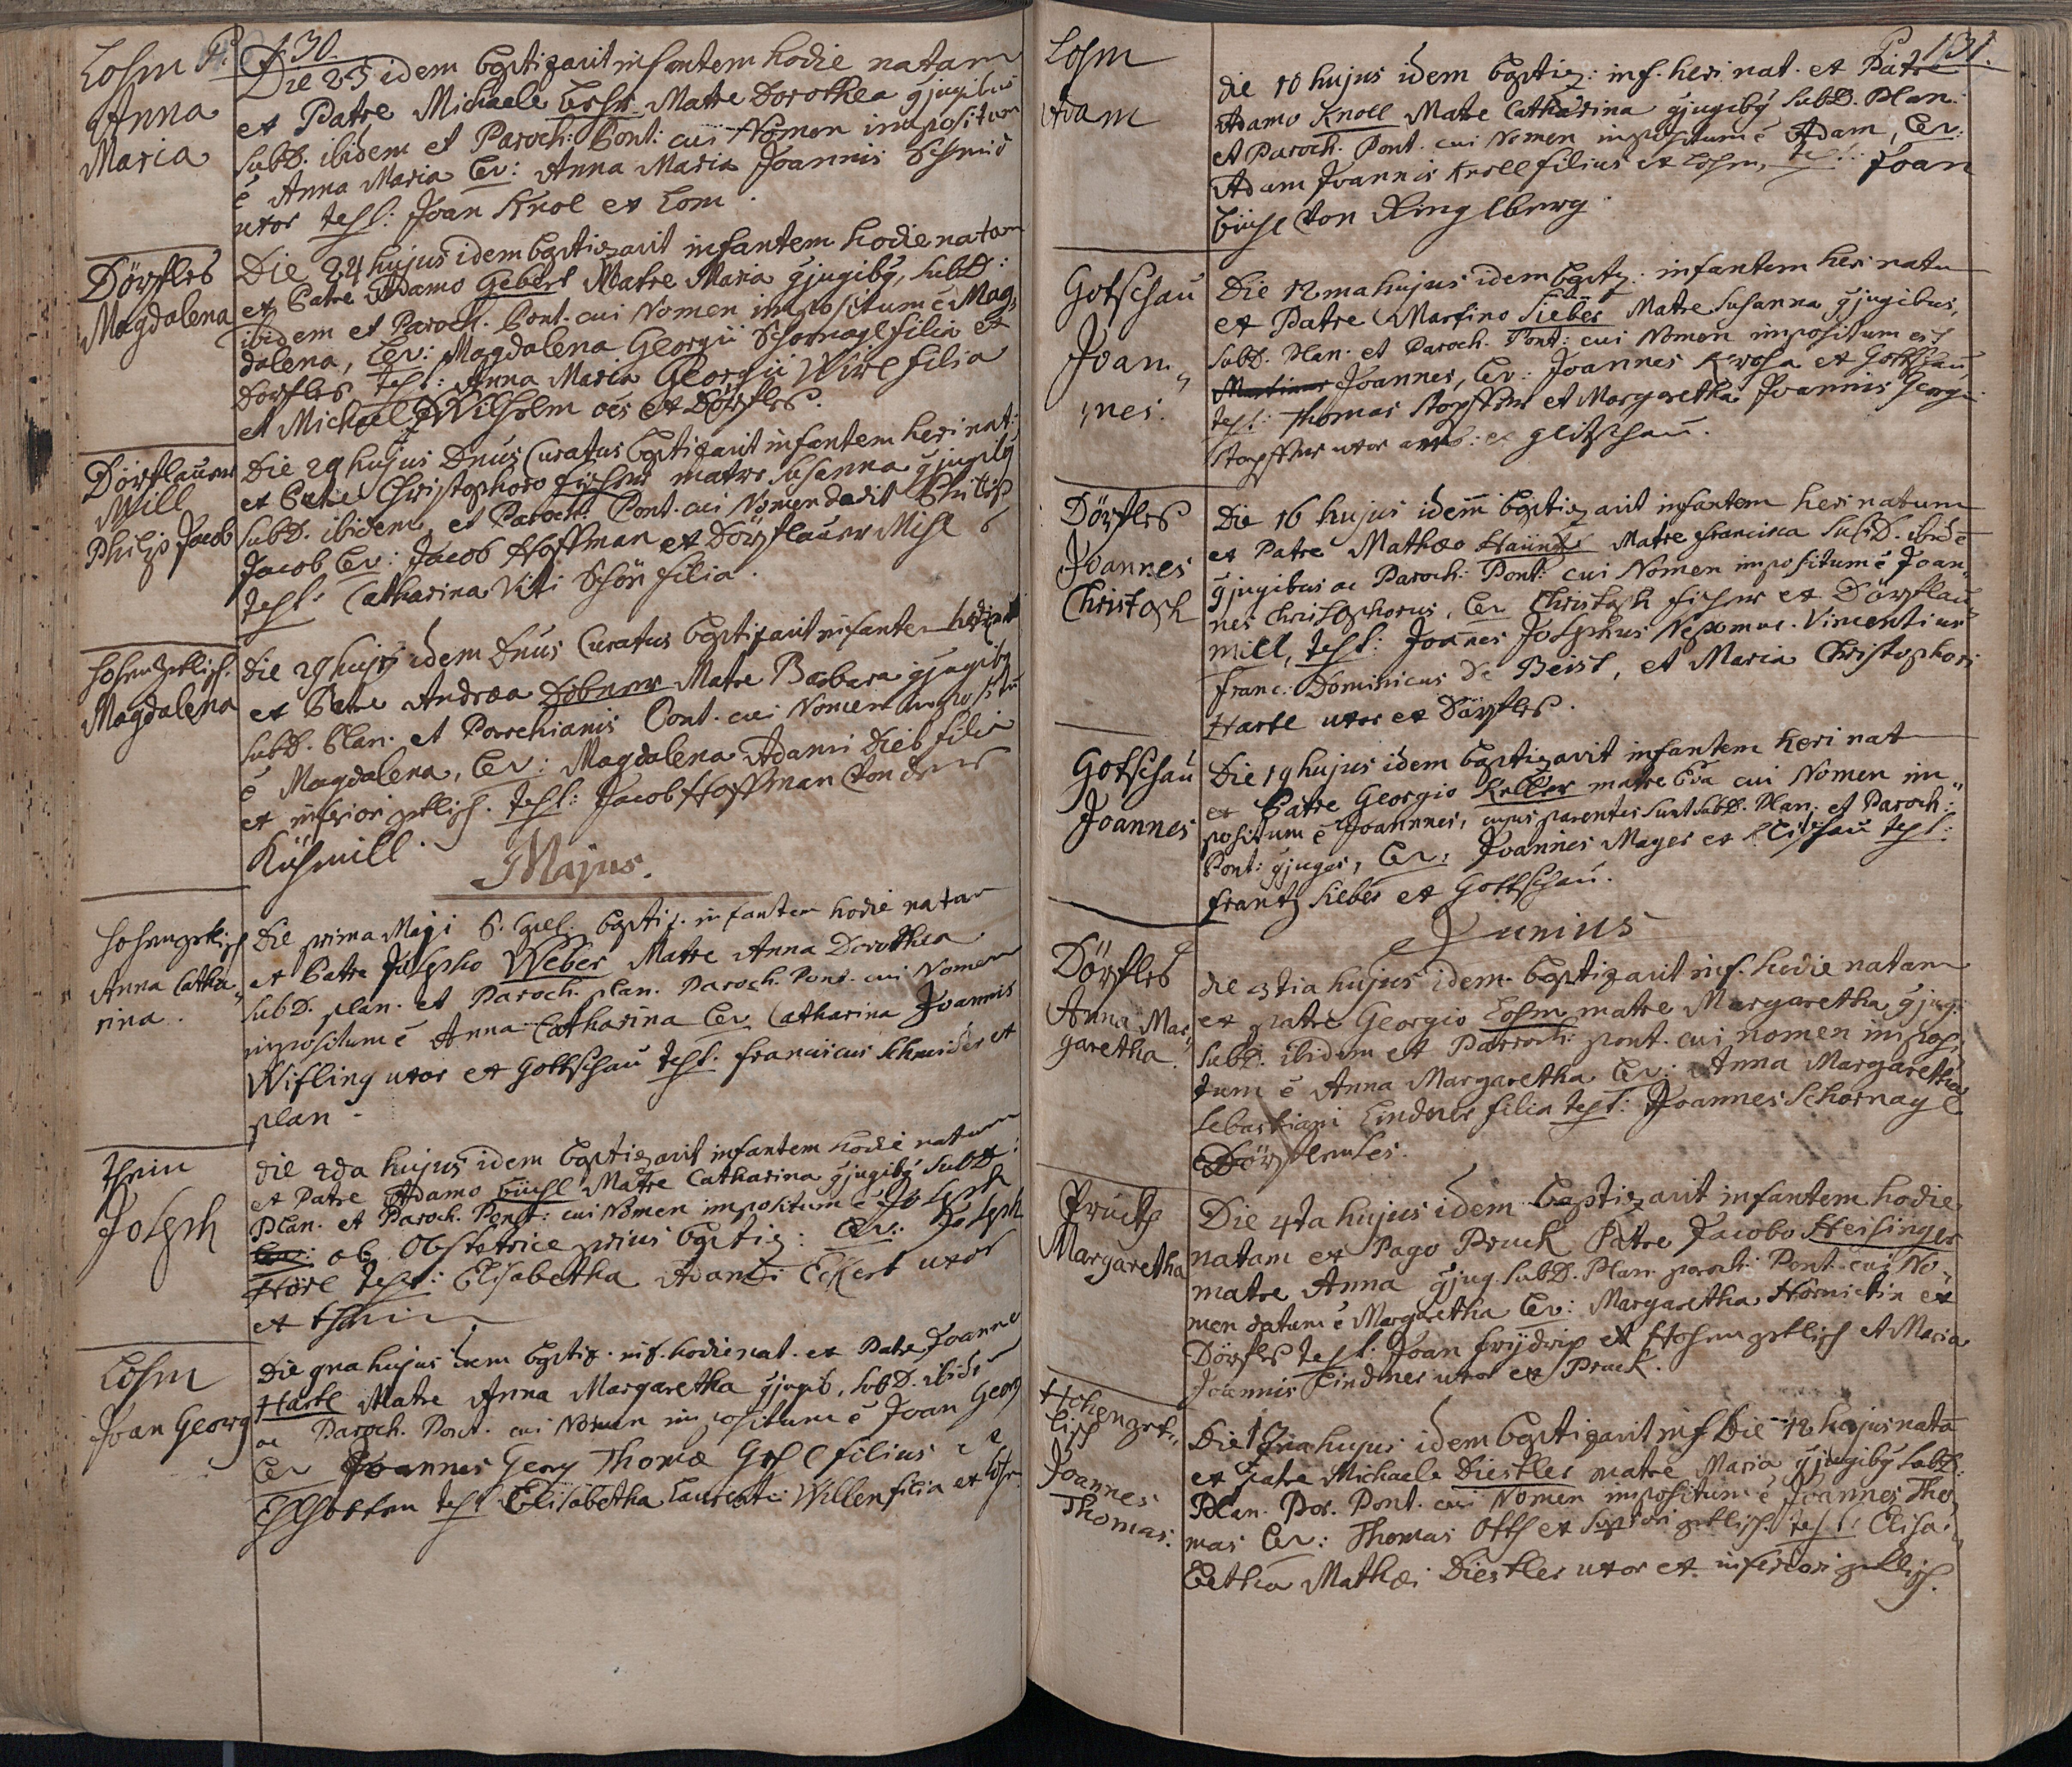 130.
Losm P.
Anna
Maria
Die 23 idem baptizavit infantem hodie natam
ex Patre Michaele Matre Dorothea gjugibus
subD. ibidem et Paroch: Pont: cui Nomen impositum
ē Anna Maria Lev: Anna Maria Joannis Schmid
uxor test: Joan Knol ex Lom.
Dörfles
Magdalena
Die 24 hujus idem baptizavit infantem hodie natam
ex Patre Adamo Gebert Matre Maria gjugibg, subD:
ibidem et Paroch. Pont. cui Nomen impositum ē Mag,,
dalena, Lev: Magdalena Georgii Schornagl filia ex
Dörfles test: Anna Maria Georgii Wirl filia
et Michael Wilholm oēs ex Dörfles.
Dörflauer
Mill
Philip Jacob
Die 29 hujus Dnus Curatus baptizavit infantem heri nat:
ex Patre Christophoro Fischer matre Susanna gjugibg
subD. ibidem, et Paroch: Pont. cui Nomen dedit Philip
Jacob Lev: Jacob Hoffman ex Dörflauer Mihl
test: Catharina Viti Schön filia.
Hohenzetlisch.
Magdalena
Die 29 hujus idem Dnus Curatus baptizavit infantem hodie nat
ex Patre Andrea Döbner Matre Barbara gjugibg
subD. Plan. et Parochianis Pont. cui Nomen impositū
ē Magdalena, Lev: Magdalena Adami Dieb filia
ex inferior zetlisch. test: Jacob Hoffman von der
Kühmill.
Majus.
Hohenzetlisch
Anna Catha,,
rina.
Die prima Maji P. baptiz. infantem hodie natam
ex Patre Josepho Weber Matre Anna Dorothea
subD. plan. et Paroch. plan. Paroch. Pont. cui Nomen
impositum ē Anna Catharina Lev Catharina Joannis
Wifling uxor ex Gottschau test: Franciscus Schneider ex
plan.
Thein
Joseph
Die 2da hujus idem baptizavit infantem hodie natum
ex Patre Adamo Büchl Matre Catharina gjugibg subD:
Plan. et Paroch. Pont: cui Nomen impositum ē Joseph
Lev: ob Obstetrice prius baptiz: Lev: Joseph
Hörl test: Elisabetha Adami Eckert uxor
ex Thein
Losm
Joan Georg
Die 9na hujus idem baptiz. inf. hodie nat. ex Patre Joanne
Hartl Matre Anna Margaretha gjugib, subD. ibidem
ac Paroch. Pont. cui Nomen impositum ē Joan Georg
Lev Joannes Georg Thomæ filius ex
test Elisabetha Laurentii Willen filia ex Losm.
131.
Losm
Adam
die 10 hujus idem baptiz: inf. heri nat. ex Patre
Adamo Knoll Matre Catharina gjugibg subD. Plan:
et Paroch. Pont. cui Nomen impositum ē Adam, Lev:
Adam Joannis Knoll filius ex Losm, test: Joan
Büchl von Ringlberg.
Gotschau
Joan,,
,,nes.
Die 12ma hujus idem baptz: infantem heri natum
ex Patre Martino Sieber Matre Susanna gjugibus,
subD. Plan. et Paroch. Pont: cui Nomen impositum est
Martinus Joannes, Lev: Joannes Krosa ex Gottschau
test: Thomas Stopffer et Margaretha Joannis Georgii
Stopffer uxor ambo: ex glitschau.
Dörfles
Joannes
Christoph
Die 16 hujus idem baptizavit infantem heri natum
ex Patre Mathæo Matre Francisca subD. ibidē
gjugibus ac Paroch: Pont: cui Nomen impositum ē Joan,,
nes Christophorus, Lev Christoph Fischer ex Dörflau,,
mill, test: Joannes Josephus Nepomuc. Vincentius
Franc: Dominicus De Beist, et Maria Christophori
Hartl uxor ex Dörfles.
Gotschau
Joannes
Die 19 hujus idem baptizavit infantem heri nat
ex Patre Georgio Keller matre Eva cui Nomen im,,
positum ē Joannes, cujus parentes sunt subD. Plan. et Paroch:
Pont: gjuges, Lev: Joannes Mayer ex test:
Frantz Sieber ex Gottschau.
Junius
Dörfles
Anna Mar,,
garetha.
die 3tia hujus idem baptizavit inf. hodie natam
ex patre Georgio Losm matre Margaretha gjug:
subD. ibidem et Parroch: pont. cui nomen imposi
tum ē Anna Margaretha Lev: Anna Margaretha
Sebastiani Lindner filia test: Joannes Schornagl
Dörflenses.
Pruck
Margaretha
Die 4ta hujus idem baptizavit infantem hodie
natam ex Pago Pruck Patre Jacobo Heisinger
matre Anna gjug. subD. Plan. paroch: Pont. cui No,,
men datum ē Margaretha Lev: Margaretha Hornickin ex
Dörfles test: Joan Fridrip ex Hohenzetlisch et Maria
Joannis Lindner uxor ex Pruck.
Hohenzet,,
lisch
Joannes
Thomas.
Die 12 hujus idem baptizavit inf. Die 12 hujus natū
ex Patre Michaele Diestler matre Maria gjugibg subD.
Plan. Par. Pont. cui Nomen impositum ē Joannes Tho,,
mas Lev: Thomas Ott ex superiori zetlisch. test: Elisa,,
betha Mathæi Diestler uxor ex inferiori zetlisch.